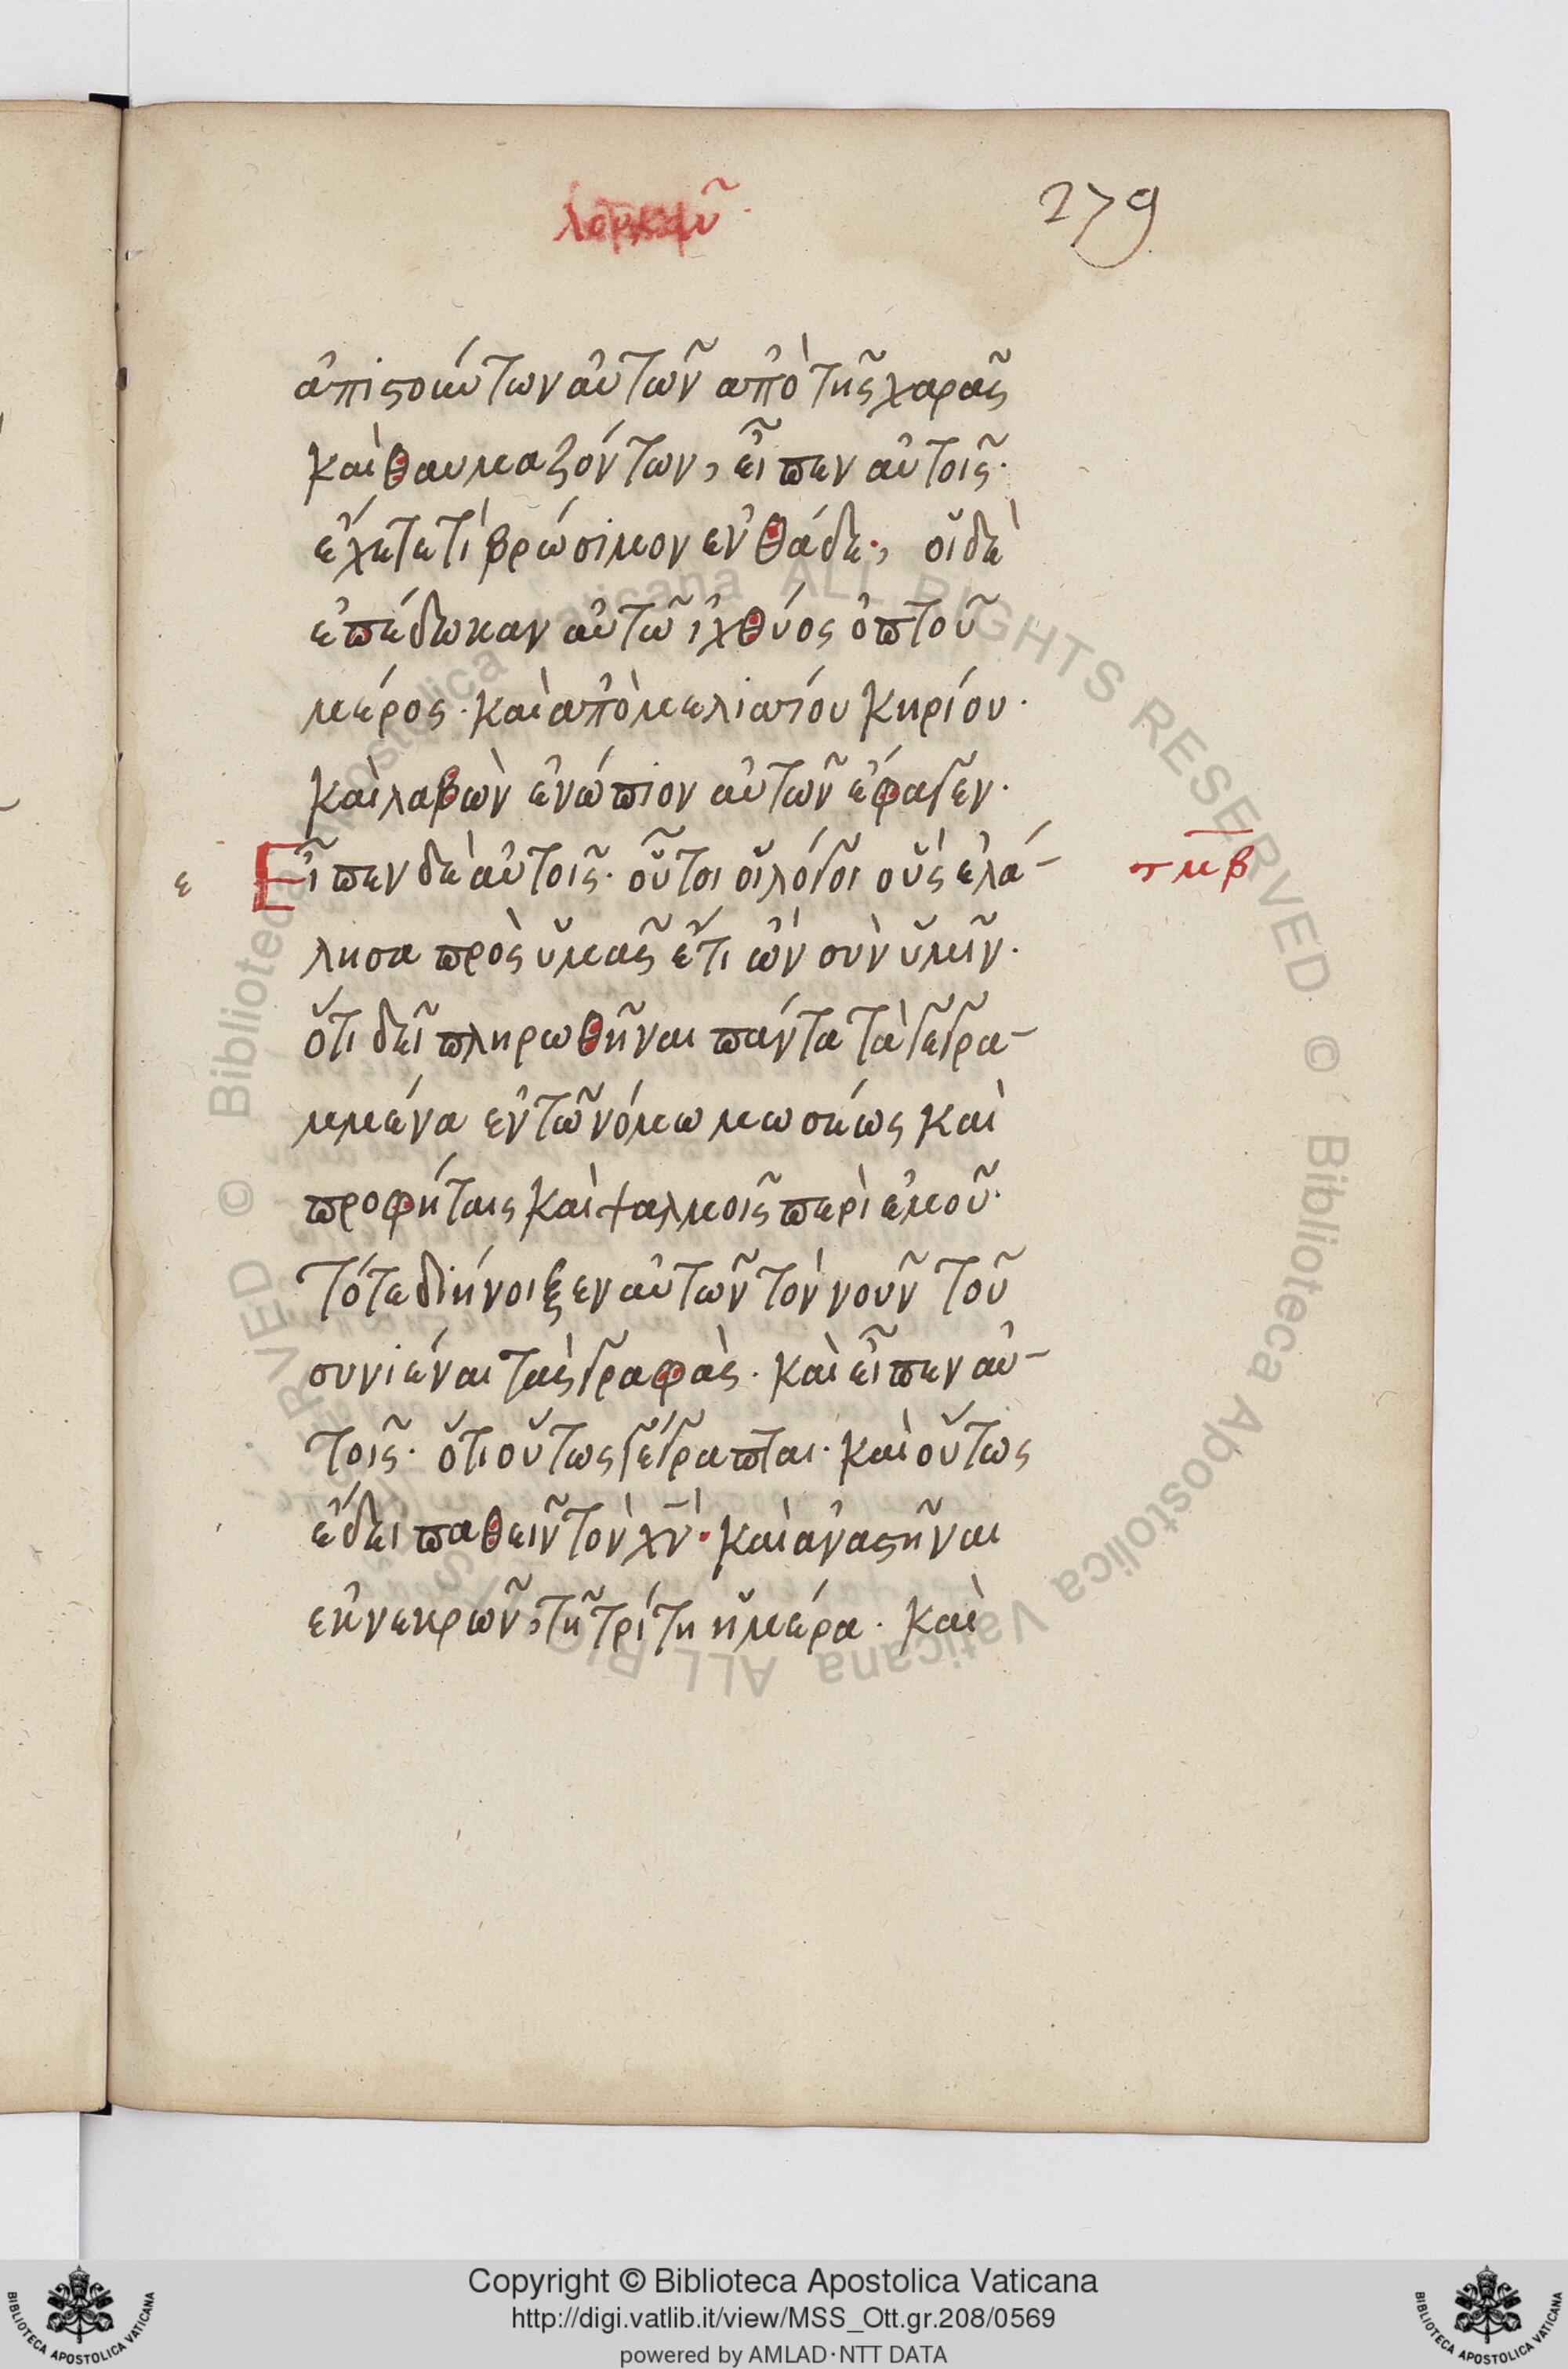 279
ἀπιστούντων αὐτῶν ἀπὸ τῆς χαρᾶς
καὶ θαυμαζόντων, εἶπεν αὐτοῖς·
ἔχετε τὶ βρώσιμον ἐνθάδε·, οἱ δὲ
ἐπέδωκαν αὐτῶ ἰχθύος ὀπτοῦ
μέρος· καὶ ἀπὸ μελισσίου κηρίου·
καὶ λαβὼν ἐνώπιον αὐτῶν ἔφαγεν·
ε Εἶπεν δὲ αὐτοῖς· οὗτοι οἱ λόγοι οὓς ἐλά- τμβ
λησα πρὸς ὑμᾶς ἔτι ὢν σὺν ὑμῖν·
ὅτι δεῖ πληρωθῆναι πάντα τὰ γεγρα-
μμένα ἐν τῶ νόμω μωσέως καὶ
προφήταις καὶ ψαλμοῖς περὶ ἐμοῦ·
Τότε διήνοιξεν αὐτῶν τὸν νοῦν τοῦ
συνιέναι τὰς γραφὰς· καὶ εἶπεν αὐ-
τοῖς· ὅτι οὕτως γέγραπται· καὶ οὕτως
ἔδει παθεῖν τὸν χν· καὶ ἀναστῆναι
ἐκ νεκρῶν, τῆ τρίτη ἡμέρα· καὶ
Copyright © Biblioteca Apostolica Vaticana
http://digi.vatlib.it/view/MSS_Ott.gr.208/0569
powered by AMLAD·NTT DATA